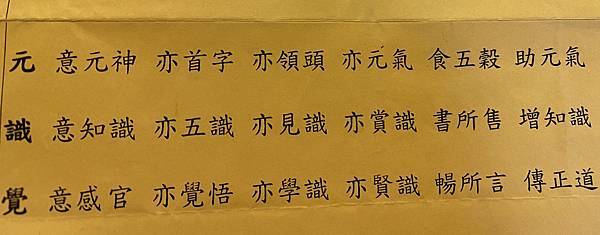 元 意元神 亦首字 亦領頭 亦元氣 食五穀 助元氣
識 意知識 亦五識 亦見識 亦賞識 書所售 增知識
覺 意感官 亦覺悟 亦學識 亦賢識 暢所言 傳正道